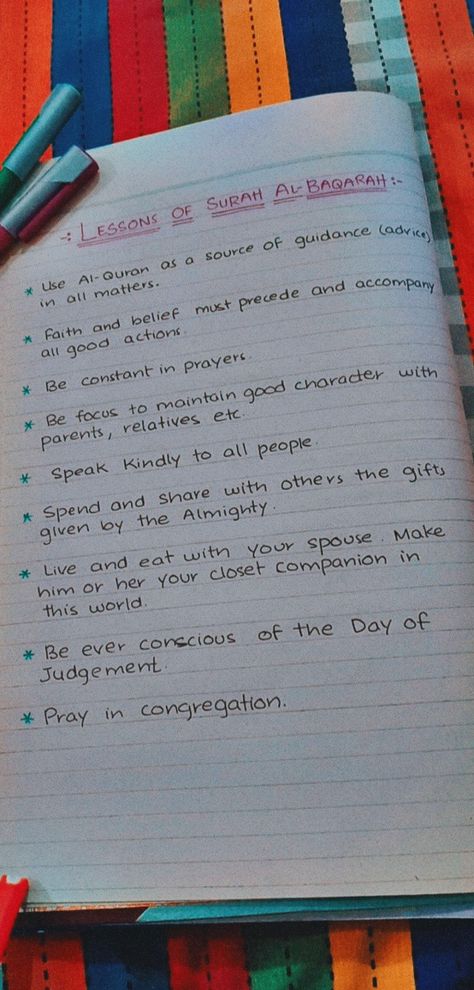 -: LESSONS OF SURAH AL-BAQARAH:-
* Use Al-Quran as a source of guidance (advice)
in all matters.
* Faith and belief must precede and accompany
all good actions.
* Be constant in prayers.
* Be focus to maintain good character with
parents, relatives etc.
* Speak kindly to all people.
* Spend and share with others the gifts
given by the Almighty.
* Live and eat with your spouse. Make
him or her your closet companion in
this world.
* Be ever conscious of the Day of
Judgement.
* Pray in congregation.